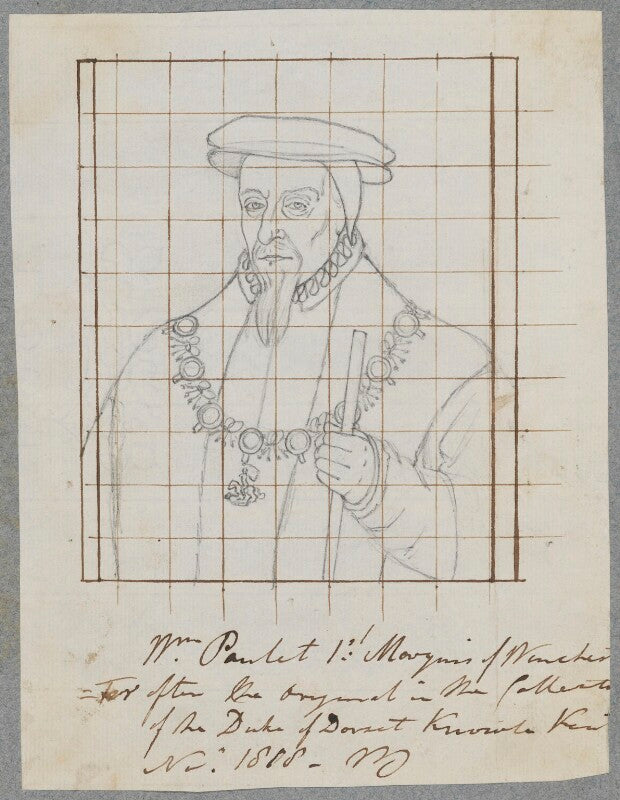 Wm Paulet 1st Marquis of Winches
=ter after the Original in the Collecti
of the Duke of Dorset Knowle Ken
1808 -